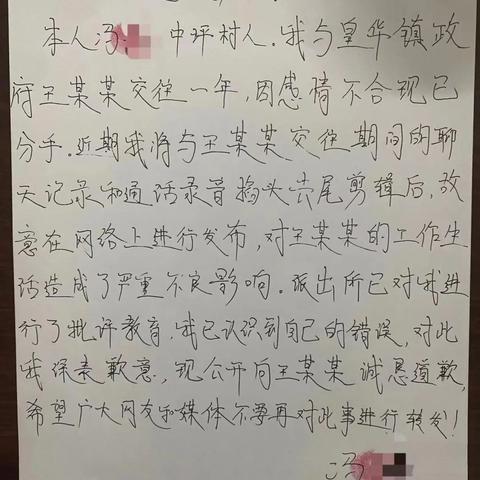 本人冯 中坪村人.我与皇华镇政
府王某某交往一年,因感情不合现已
分手.近期我将与王某某交往期间的聊
天记录和通话录音掐头去尾剪辑后,故
意在网络上进行发布,对王某某的工作生
活造成了严重不良影响.派出所已对我进
行了批评教育,我已认识到自己的错误,对此
我深表歉意,现公开向王某某诚恳道歉,
希望广大网友和媒体不要再对此事进行转发!
冯